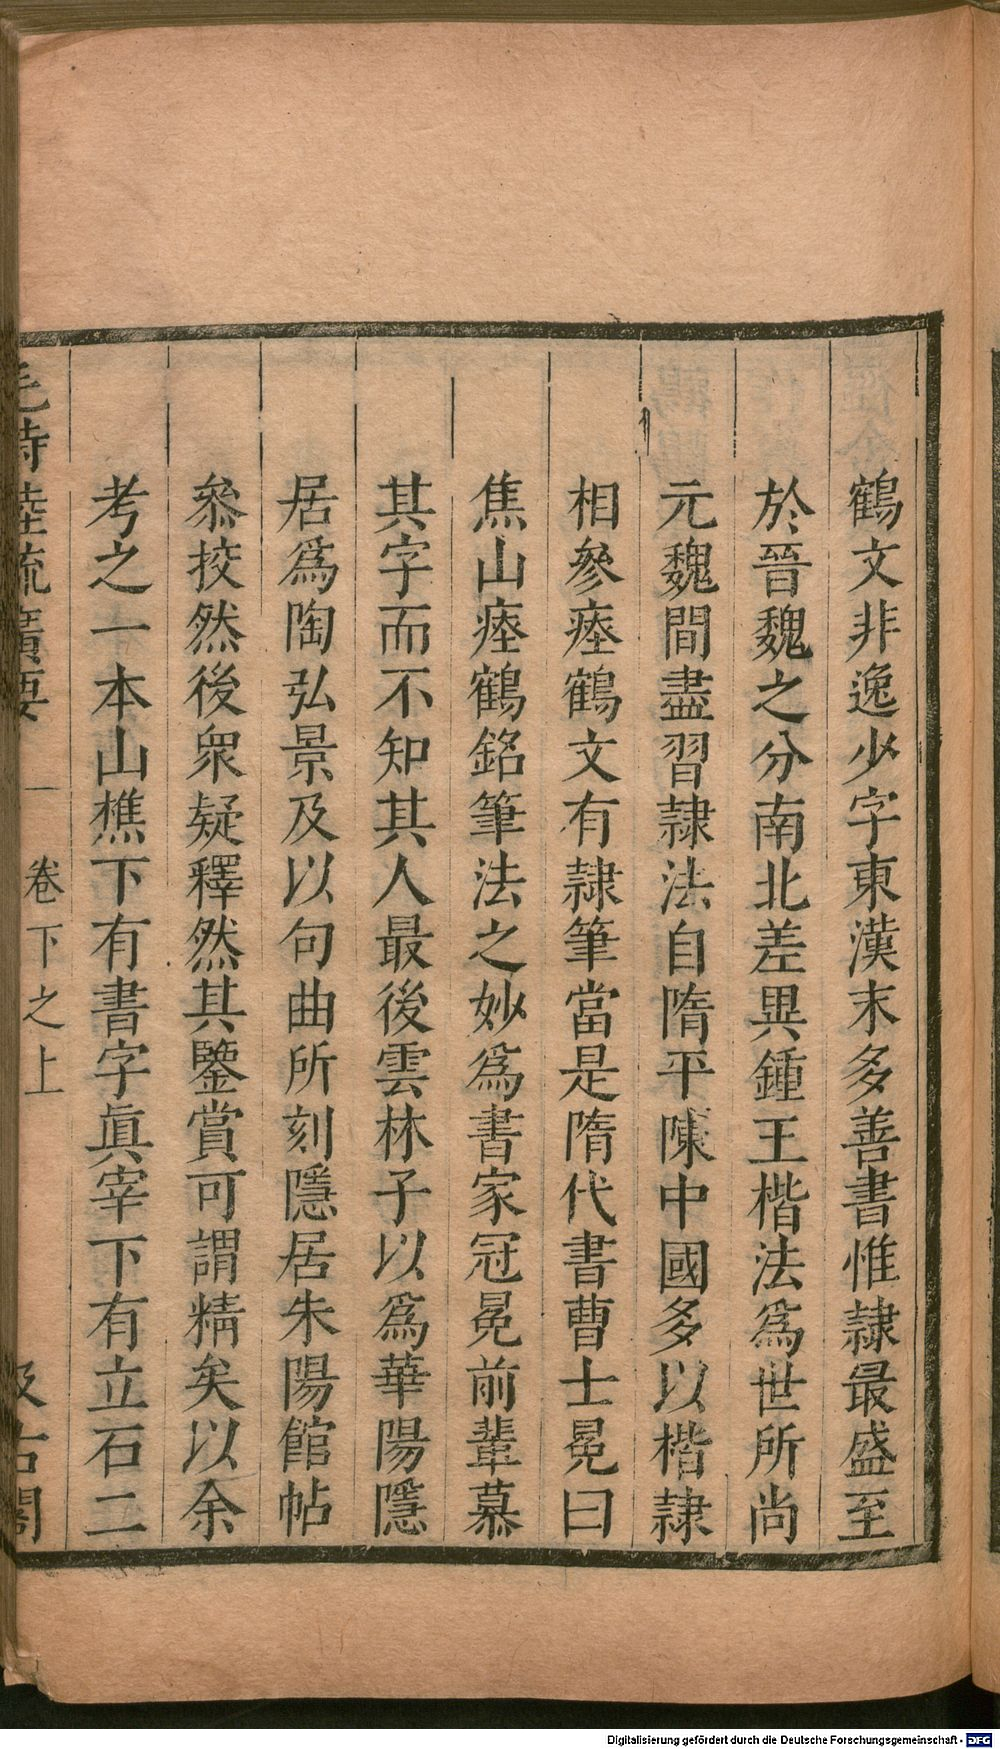 鶴文非逸少字東漢末多善書惟隷最盛至
於晉魏之分南北差異鍾王楷法爲世所尚
元魏間盡習隷法自隋平陳中國多以楷隷
相參瘞鶴文有隷筆當是隋代書曹士冕曰
焦山瘞鶴銘筆法之妙爲書家冠冕前輩慕
其字而不知其人最後雲林子以爲華陽隱
居爲陶弘景及以句曲所刻隱居朱陽館帖
叅挍然後衆疑釋然其鑒賞可謂精矣以余
考之一本山樵下有書字眞宰下有立石二
毛詩陸疏廣要
卷下之上
汲古閣
Digitalisierung gefördert durch die Deutsche Forschungsgemeinschaft - DFG